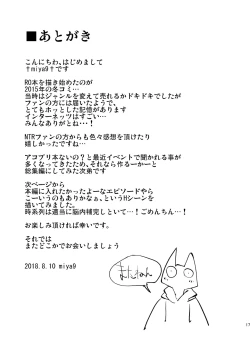 ■あとがき
こんにちわ、はじめまして
†miya9†です
RO本を描き始めたのが
2015年の冬コミ…
当時はジャンルを変えて売れるかドキドキでしたが
ファンの方には届いたようで、
とてもほっとした記憶があります
インターネッツはすごい…
みんなありがとね・・・！
NTRファンの方からも色々感想を頂けたり
嬉しかったですね…
アコプリ本ないの？と最近イベントで聞かれる事が
多くなってきたため、それなら作るーかーと
総集編にしてみた次第です
次ページから
本編に入れたかったよーなエピソードやら
こーいうのもありかなぁ、というHシーンを
描いてみました。
時系列は適当に脳内補完して下さい…！ごめんちん…！
お楽しみ頂ければ幸いです。
それでは
またどこかでお会いしましょう
2018.8.10 miya9
またねん
17